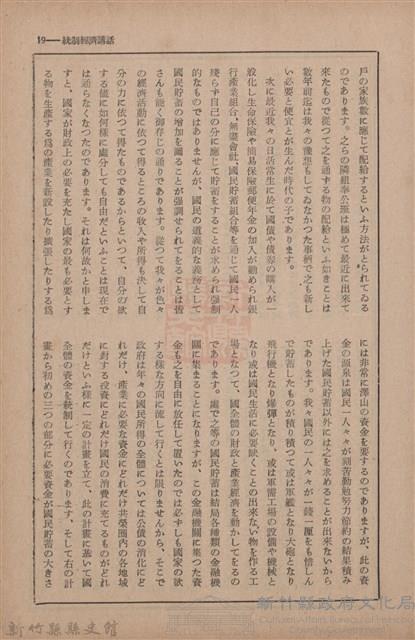 19——統制經濟講話
戶の家族數に應じて配給するといふ方法がとられてゐる
のであります。之らの隣組奉公班は極めて最近に出來て
來たもので從つて之を通ずる物の配給といふ如きことは
數年前迄は我々の豫想もしてゐなかつた事柄で之も新し
い必要と便宜とが生んだ時代の子であります。
次に最近我々の日活常生に於て國債や債券の購入が一
般化し生命保險や簡易保險郵便年金の加入が勸められ銀
行產業組合、無盡會社、國民貯蓄組合等を通じて國民一人
殘らず自己の分に應じて貯蓄をすることが求められ强制
的なものではありませんが、國民の道義的な義務として
國民貯蓄の增加を圖ることが强調せられてをることは皆
さんも能く御存じの通りであります。從つて我々が色々
の經濟活動に依つて得るところの收入や所得も決して自
分の力に依つて得たものであるからといつて、自分の欲
する儘に如何樣に處分しても自由だといふことは現在で
は通らなくなつたのであります。それは何故かと申しま
すと、國家が財政上の必要を充たし國家の最も必要とす
る物を生產する爲の產業を新設したり擴張したりする爲
には非常に澤山の資金を要するのでありますが、此の資
金の源泉は國民一人々々が刻苦勤勉努力節約の結果積み
上げた國民貯蓄以外には之を求めることが出來ないから
であります。我々國民の一人々々が一錢一厘をも惜しん
で貯蓄したものが積り積つて或は軍艦となり大砲となり
飛行機となり爆彈となり、或は軍需工場の設備や機械と
なり或は國民生活に必要缺くことの出來ない物を作る工
場となつて、國全體の財政と產業經濟を動かしてをるの
であります。處で之等の國民貯蓄は結局各種類の金融機
關に集まることになりますが、この金融機關に集つた資
金も之を自由に放任して置いたのでは必ずしも國家の欲
する樣な方向に流して行くとは限りませんから、そこで
政府は年々の國民所得の全體については公債の消化にど
れだけ、產業に必要な資金にどれだけ共榮圈內の各地域
に對する投資にどれだけ國民の消費に充てるものがどれ
だけといふ樣に一定の計畫を立て、此の計畫に基いて國
全體の資金を統制して行くのであります、そして右の計
畫から初めの三つの部分に必要な資金が國民貯蓄の大きさ
新竹縣縣史館
新竹縣政府文化局
Cultural Affairs Bureau of Hsinchu County Government